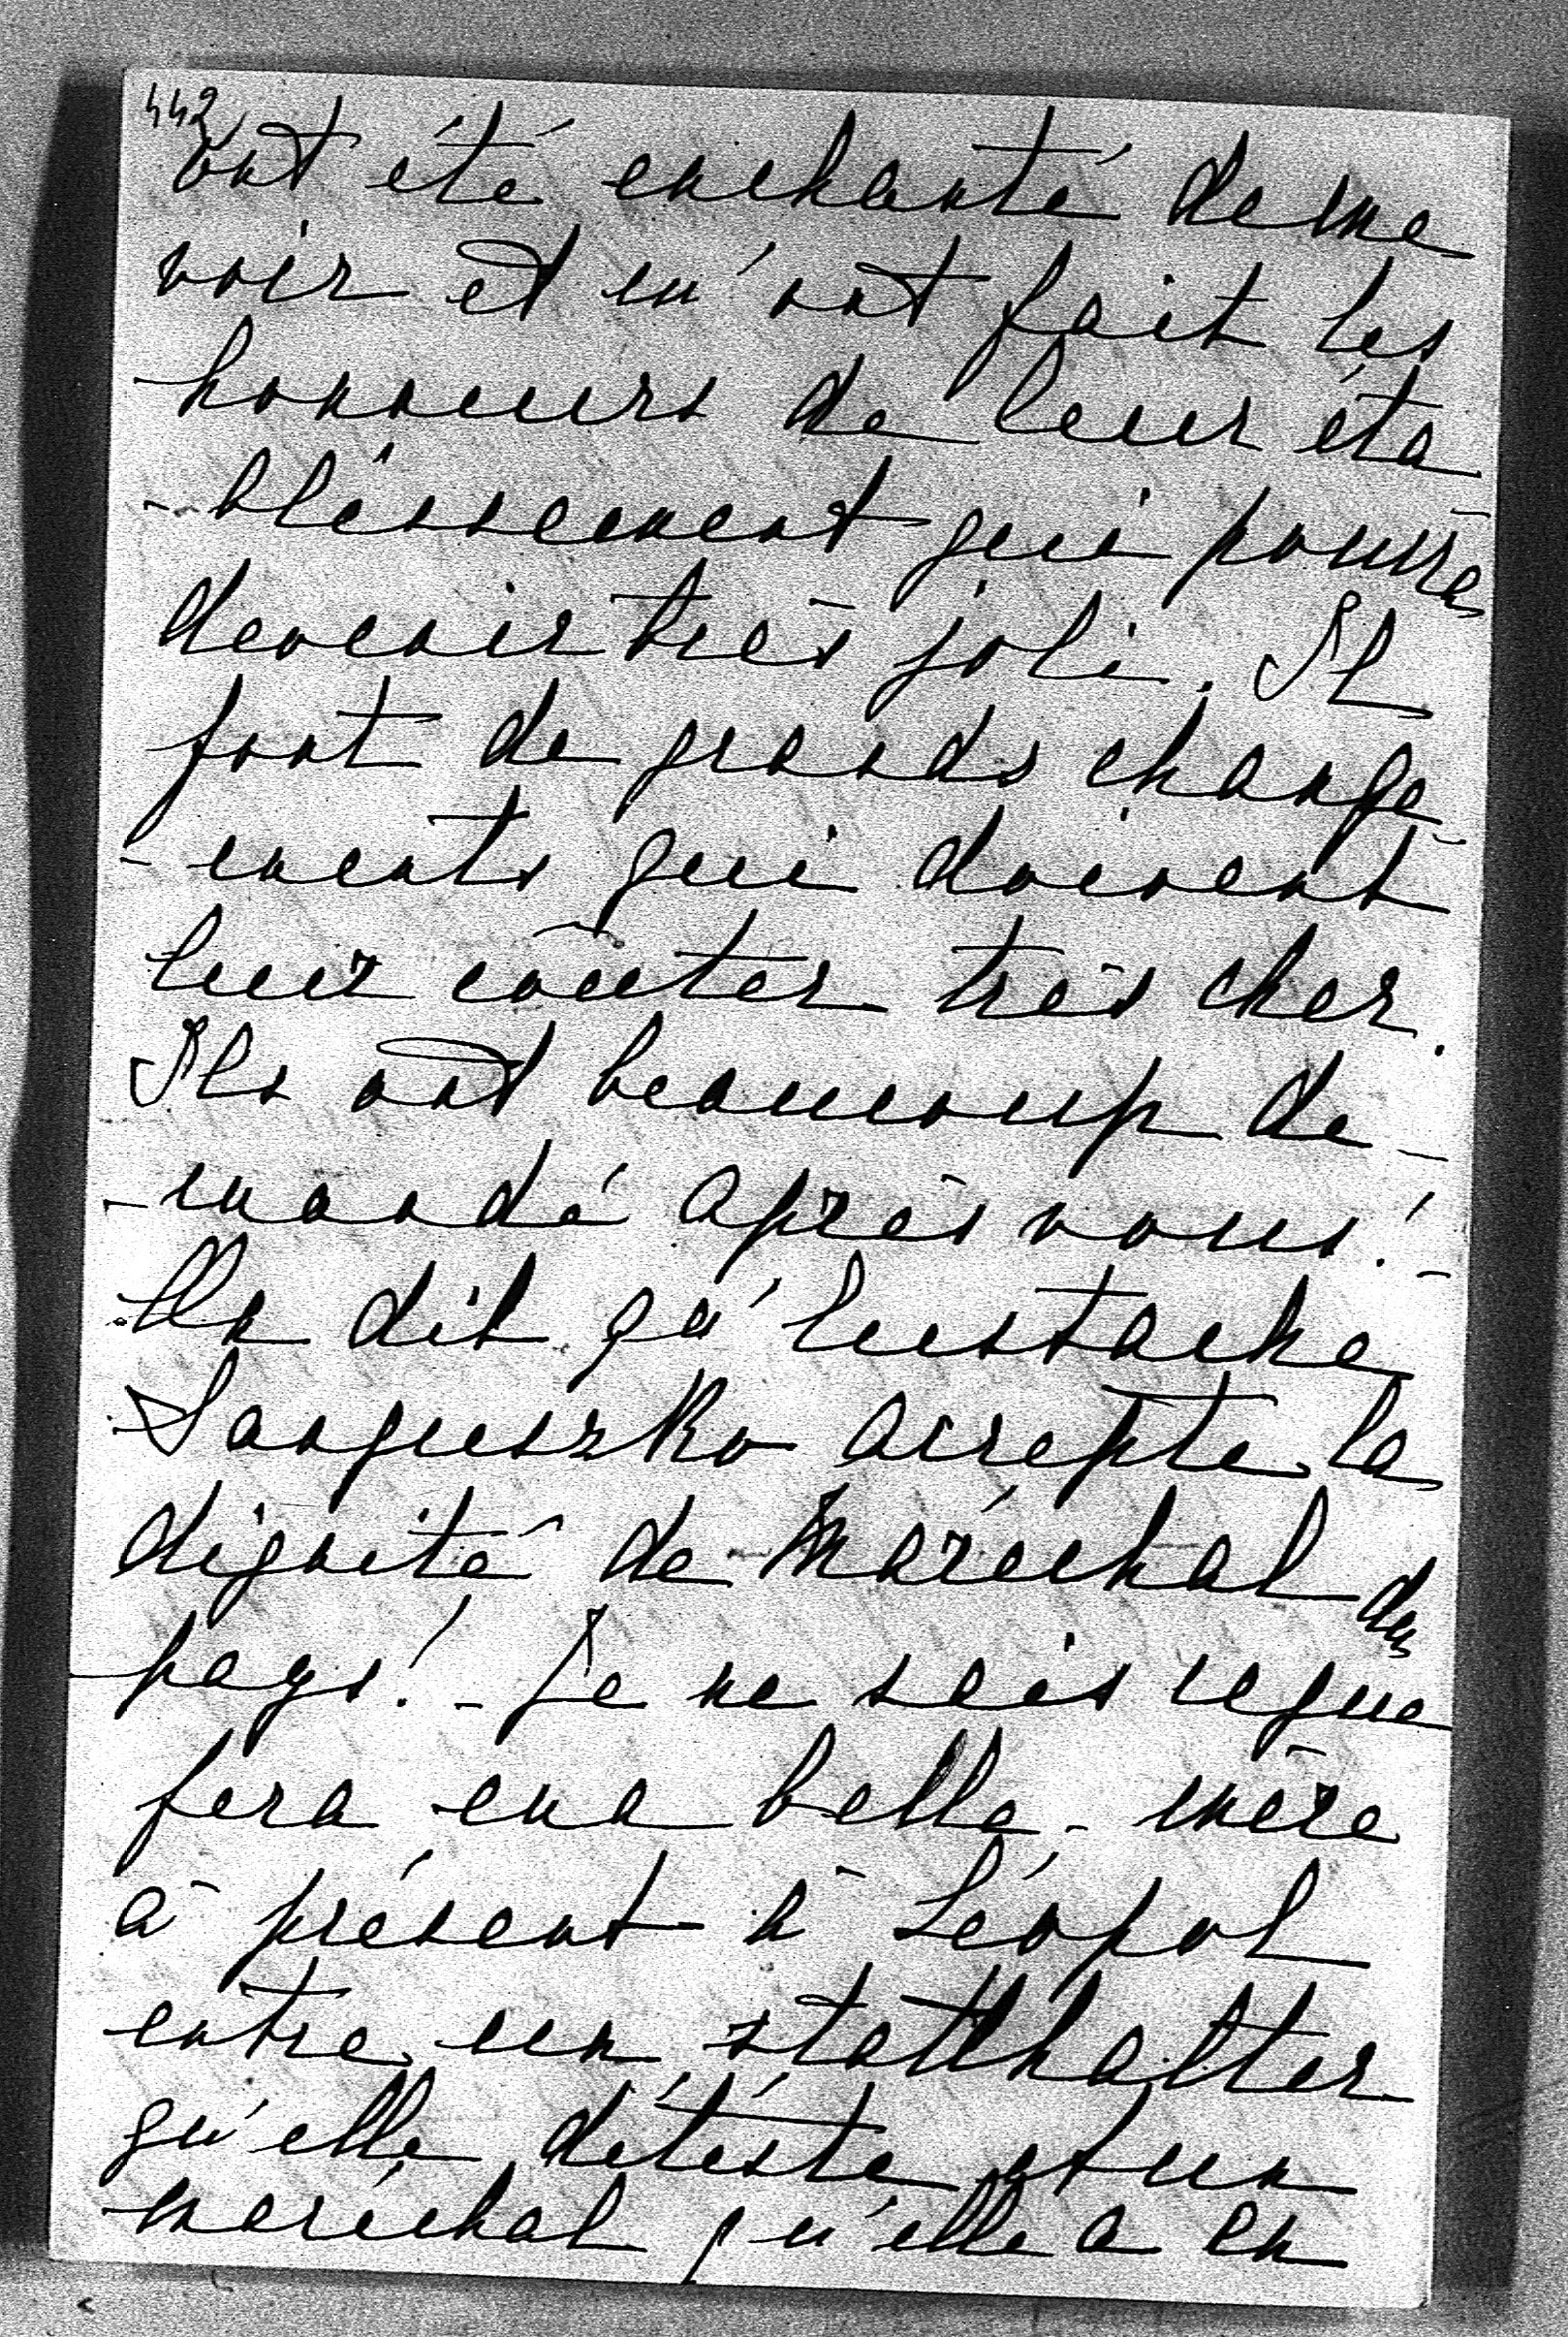 442
ont été enchanté de me
voir et m'ont fait les
honneurs de leur éta
-blissement qui pourra
devenir très joli. Il
font de grands change
-ments qui doivent
leur coûter très cher.
Ils ont beaucoup de-
-mandé après vous! -
On dit qu'Eustache
Sanguszko accepte la
dignité de Maréchal du
pays! - Je ne sais ce que
fera ma belle-mère
à présent à Léopol
entre un statthalter
qu'elle déteste et un
maréchal qu'elle a en